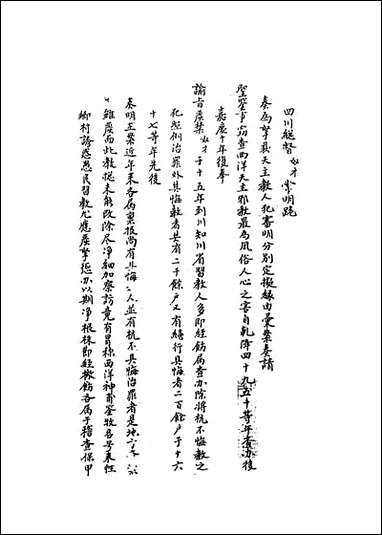 四川總督奴才常明跪
奏為拏獲天主教人犯審明分別定擬緣由彙案奏請
聖鑒事竊查西洋天主邪教最為風俗人心之害自乾隆四十九五十等年查办後
嘉慶十年復奉
諭旨嚴禁奴才于十五年到川知川省習教人多即經飭属查办除將抗不悔教之
犯照例治罪外其悔教者共有二千餘户又有續行具悔者二百餘户于十六
十七等年先後
奏明在案近年来各属禀报尚有具悔之人並有抗不具悔治罪者是地方
雖廣而此教總未能改除尽净細加察訪竟有冒称西洋神甫鐸牧各号来往
鄉村誘惑愚民習教尤應嚴拏惩办以期净根株即經檄飭各属于稽查保甲